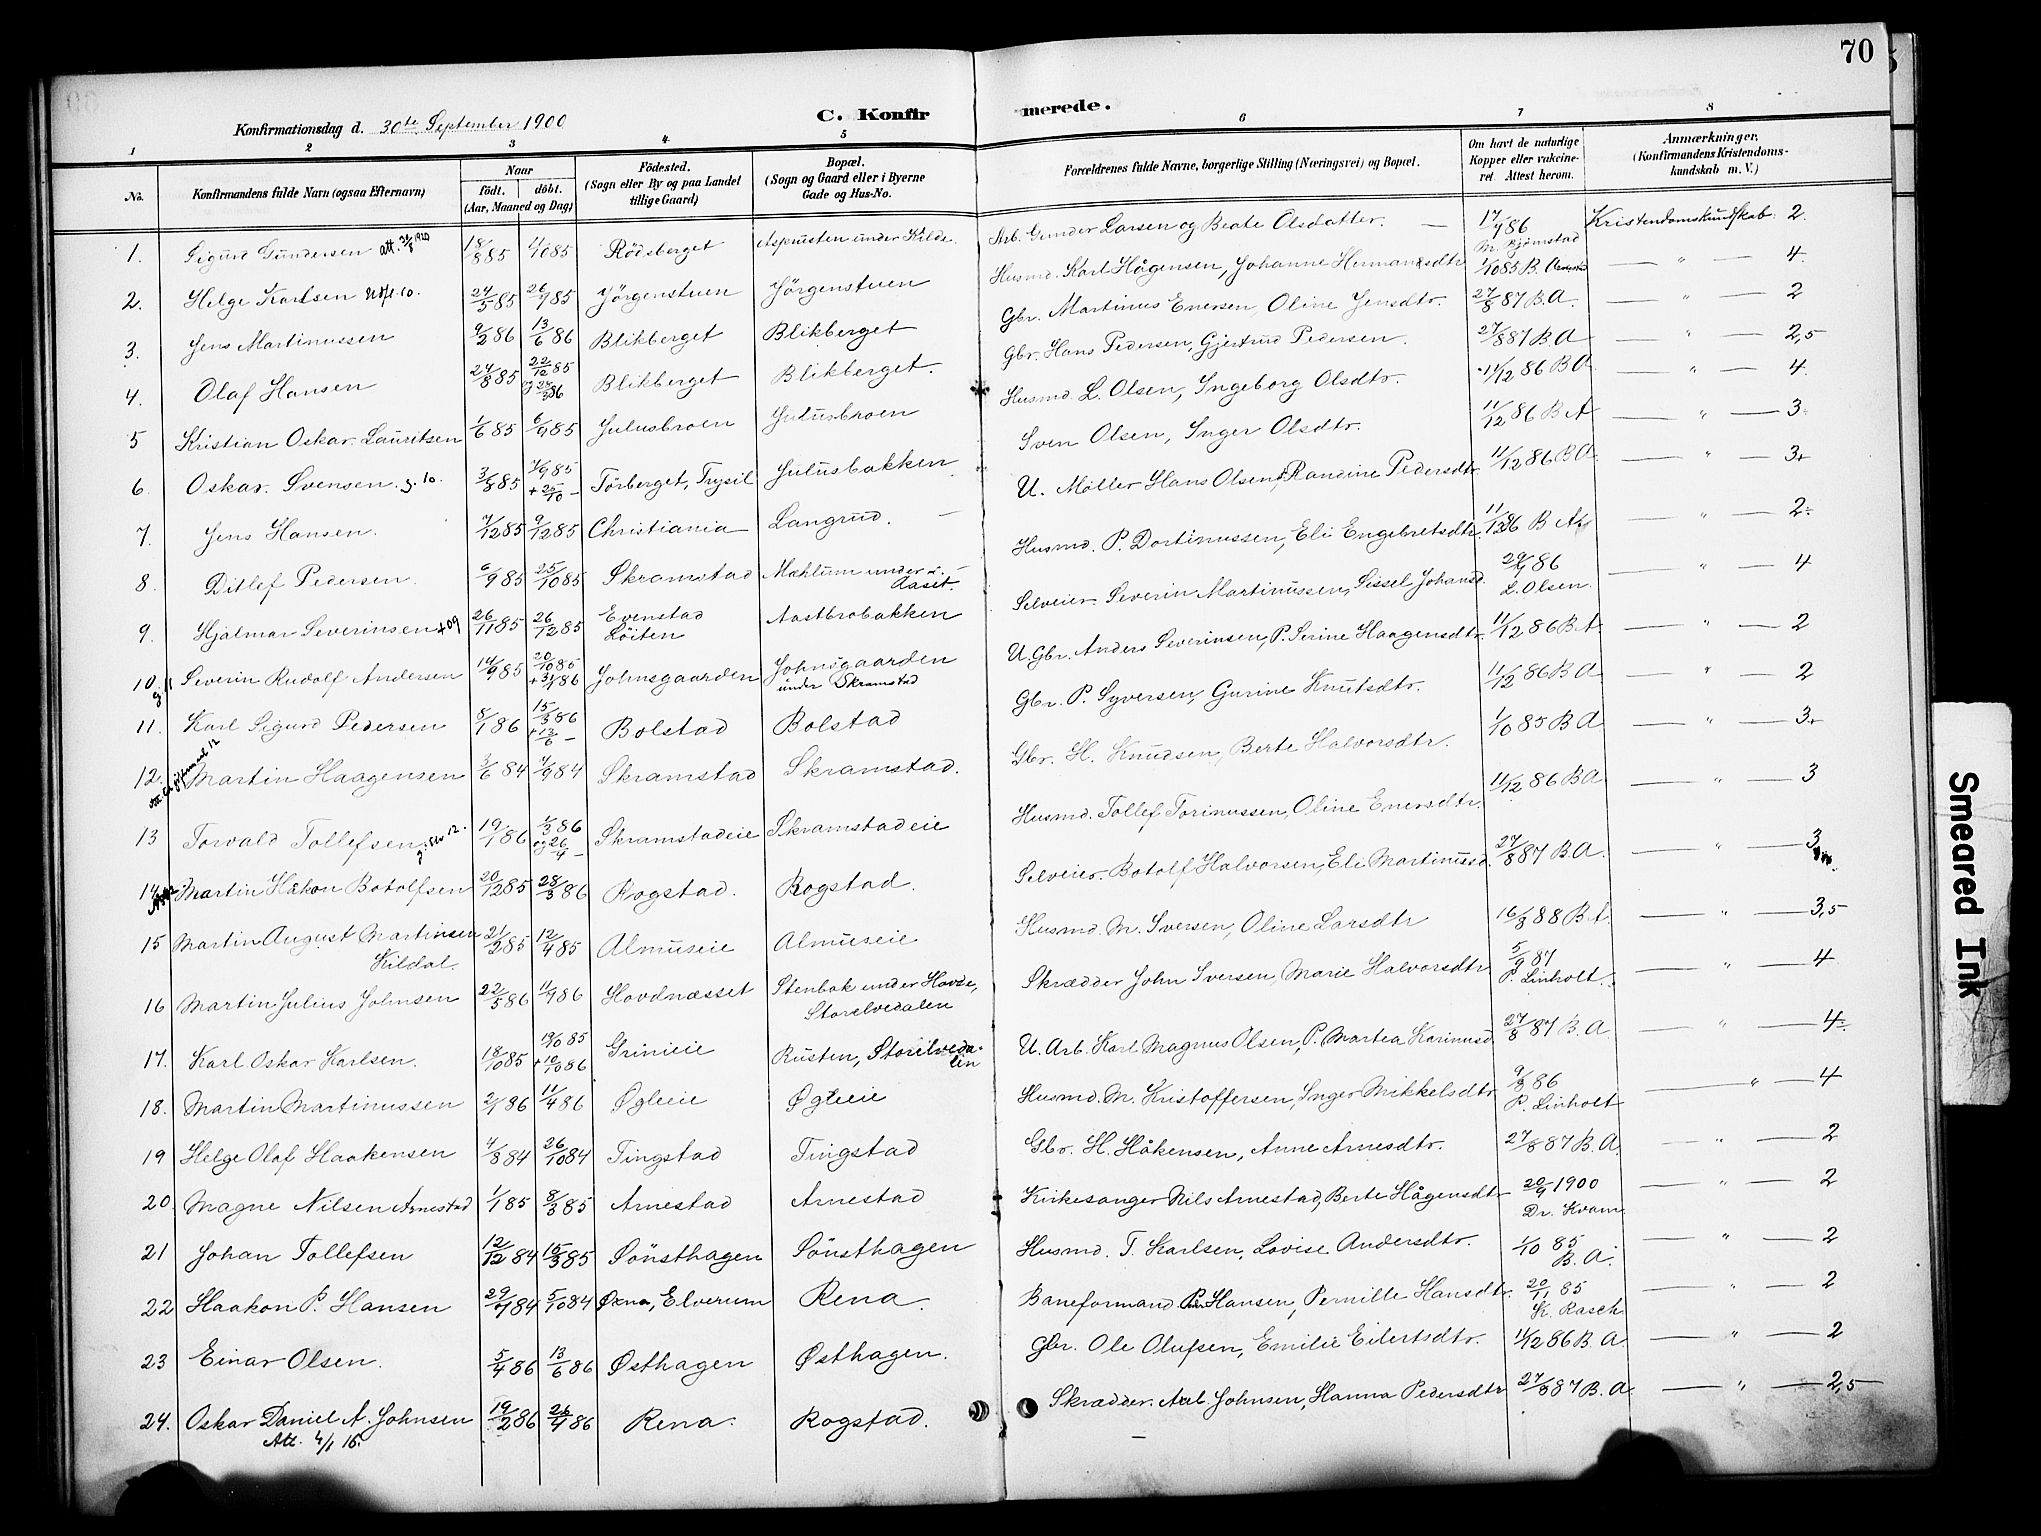 70
Konfirmationsdag d. 30te September 1900 C. Konfirmerede.
1 2 3 4 5 6 7 8
No. Konfirmandens fulde Navn (ogsaa Efternavn) Naar født. døbt. (Aar, Maaned og Dag) Födested. (Sogn eller By og paa Landet tillige Gaard) Bopæl. (Sogn og Gaard eller i Byerne Gade og Hus-No. Forældrenes fulde Navne, borgerlige Stilling (Næringsvei) og Bopæl. Om havt de naturlige Kopper eller vakcineret. Attest herom. Anmærkninger. (Konfirmandens Kristendomskundskab m. V.)
1. Sigurd Gundersen 18/8 85 4/10 85 Rödsberget Aspeusten under Kilde Arb. Gunder Larsen og Beate Olsdatter. — 17/9 86 M. Bjørnstad Kristendomskundskab. 2.
2. Helge Karlsen 24/5 85 26/7 85 Jörgenstuen Jörgenstuen Husmd. Karl Hågensen, Johanne Hermansdtr 1/10 85 B. — " — 4.
3. Jens Martinussen 9/2 86 13/6 86 Blikberget Blikberget Gbr. Martinus Enersen, Oline Jensdtr. 27/8 87 B.A. — " — 2
4. Olaf Hansen 24/8 85 22/12 85 og 28/3 86 Blikberget Blikberget. Gbr. Hans Pedersen, Gjertrud Pedersen. 27/8 87 B A — " — 2,5
5 Kristian Oskar Lauritsen 1/6 85 6/9 85 Julusbroen Julusbroen Husmd L. Olsen, Ingeborg Olsdtr. 11/12 86 B A — " — 4.
6. Oskar Svensen. g. 10. 3/8 85 7/9 85 + 25/10 — Törberget, Trysil Julusbakken Sven Olsen, Inger Olsdtr. 11/12 86 B A — " — 3÷
7. Jens Hansen. 7/12 85 9/12 85 Christiania Langrud. — U. Møller Hans Olsen, Randine Pedersdtr. 11/12 86 B A — " — 3+
8. Ditlef Pedersen 6/9 85 25/10 85 Skramstad Mæhlum under Aaset. Husmd. P. Dortinussen, Eli Engebretsdtr. 11/12 86 B A — " — 2÷
9. Hjalmar Severinsen + 09 26/11 85 26/12 85 Evenstad Löiten Aastbrobakken Selveier Severin Martinussen, Sissel Johansd. 29/9 86 L. Olsen. — " — 4
10. Severin Rudolf Andersen 14/9 85 20/10 85 + 31/1 86 Johnsgaarden Johnsgaarden under Skramstad U. Gbr. Anders Severinsen, P. Serine Haagensdtr. 11/12 86 B A. — " — 2
11. Karl Sigurd Pedersen 8/1 86 15/3 86 + 13/6 — Bolstad Bolstad Gbr. P. Syversen, Gurine Knutsdtr. 11/12 86 B A — " — 2
12. Martin Haagensen 3/6 84 7/9 84 Skramstad Skramstad. Gbr. H. Knudsen, Berte Halvorsdtr. 1/10 85 B A — " — 3+
13 Torvald Tollefsen 19/1 86 1/3 86 og 26/4 — Skramstadeie Skramstadeie Husmd. Tollef Torinussen, Oline Enersdtr. 11/12 86 B A — " — 3
14 Martin Håkon Botolfsen 20/12 85 28/3 86 Rogstad. Rogstad. Selveier Botolf Halvorsen, Eli Martinusd. 27/8 87 B.A. — " — 3
15 Martin August Martinsen Kildal. 21/2 85 12/4 85 Almuseie Almuseie Husmd. M. Iversen, Oline Larsdtr 16/3 88 B A. — " — 3,5
16 Martin Julius Johnsen 22/5 86 11/7 86 Hovdnæsset Stenbak under Hovde, Storelvedalen Skrædder John Iversen, Marie Halvorsdtr. 5/9 87 P. Linholt. — " — 4
17. Karl Oskar Karlsen. 18/10 85 19/10 85 + 10/10 86 Grinieie Rusten, Storelvedalen U. Arb. Karl Magnus Olsen, P. Martea Karinusd. 27/8 87 B. A — " — 4÷
18. Martin Martinussen 2/1 86 11/4 86 Ögleie Ögleie Husmd. M. Kristoffersen, Inger Mikkelsdtr. 9/8 86 P. Linholt — " — 4
19 Helge Olaf Haakensen 4/8 84 26/10 84 Tingstad Tingstad Gbr. H. Håkensen, Anne Arnesdtr. 27/8 87 B.A. — " — 2
20. Magne Nilsen Arnestad 1/1 85 8/3 85 Arnestad Arnestad Kirkesanger Nils Arnestad, Berte Hågensdtr 20/9 1900 Dr. Kvam. — " — 2
21 Johan Tollefsen 12/12 84 15/3 85 Sönsthagen Sönsthagen Husmd. T. Karlsen, Lovise Andersdtr. 1/10 85 B. A. — " — 2
22 Haakon P. Hansen 29/7 84 5/10 84 Öxna, Elverum Rena. Baneformand P. Hansen, Pernille Hansdtr. 20/11 85 K. Rasch — " — 2
23 Einar Olsen. 5/4 86 13/6 86 Østhagen Østhagen. Gbr. Ole Olufsen, Emilie Eilertsdtr. 11/12 86 B. A. — " — 2
24. Oskar Daniel A. Johnsen 19/2 86 26/4 86 Rena. Rogstad. Skrædder Axel Johnsen, Hanna Pedersdtr 27/8 87 B. A. — " — 2,5
Att. 4/1 16.
Smeared Ink